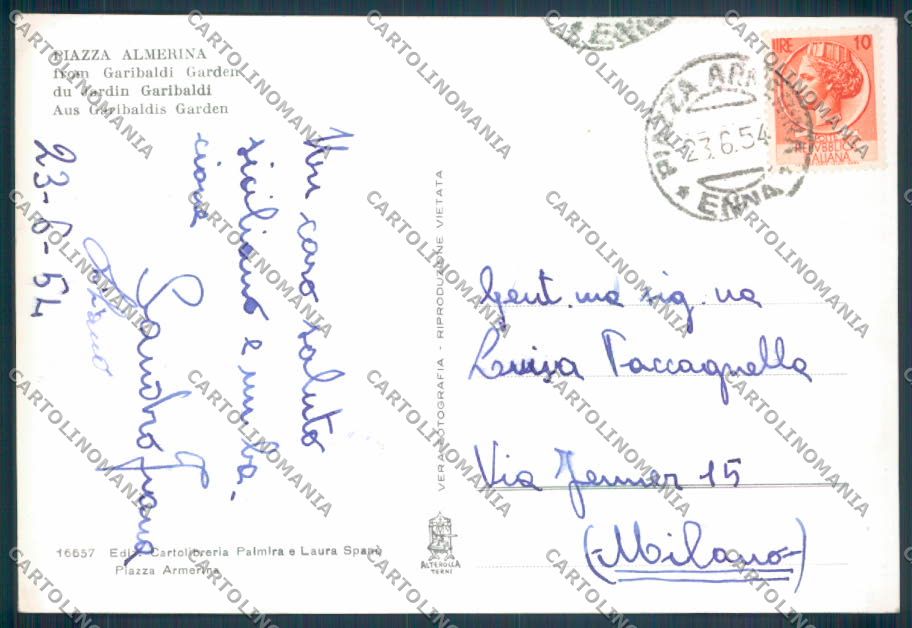 PIAZZA ALMERINA
from Garibaldi Garden
du Jardin Garibaldi
Aus Garibaldis Garden
23-6-54
Un caro saluto
siciliano e un ba-
cione
Sandro
VERA FOTOGRAFIA - RIPRODUZIONE VIETATA
ALTEROCCA
TERNI
16657 Ediz. Cartolibreria Palmira e Laura Spanò
Piazza Armerina
PIAZZA ARMERINA
23.6.54
* ENNA *
ENNA
LIRE 10
REPVBBLICA
ITALIANA
Gent.ma sig.na
Luisa Paccagnella
Via Jenner 15
(-Milano-)
CARTOLINOMANIA